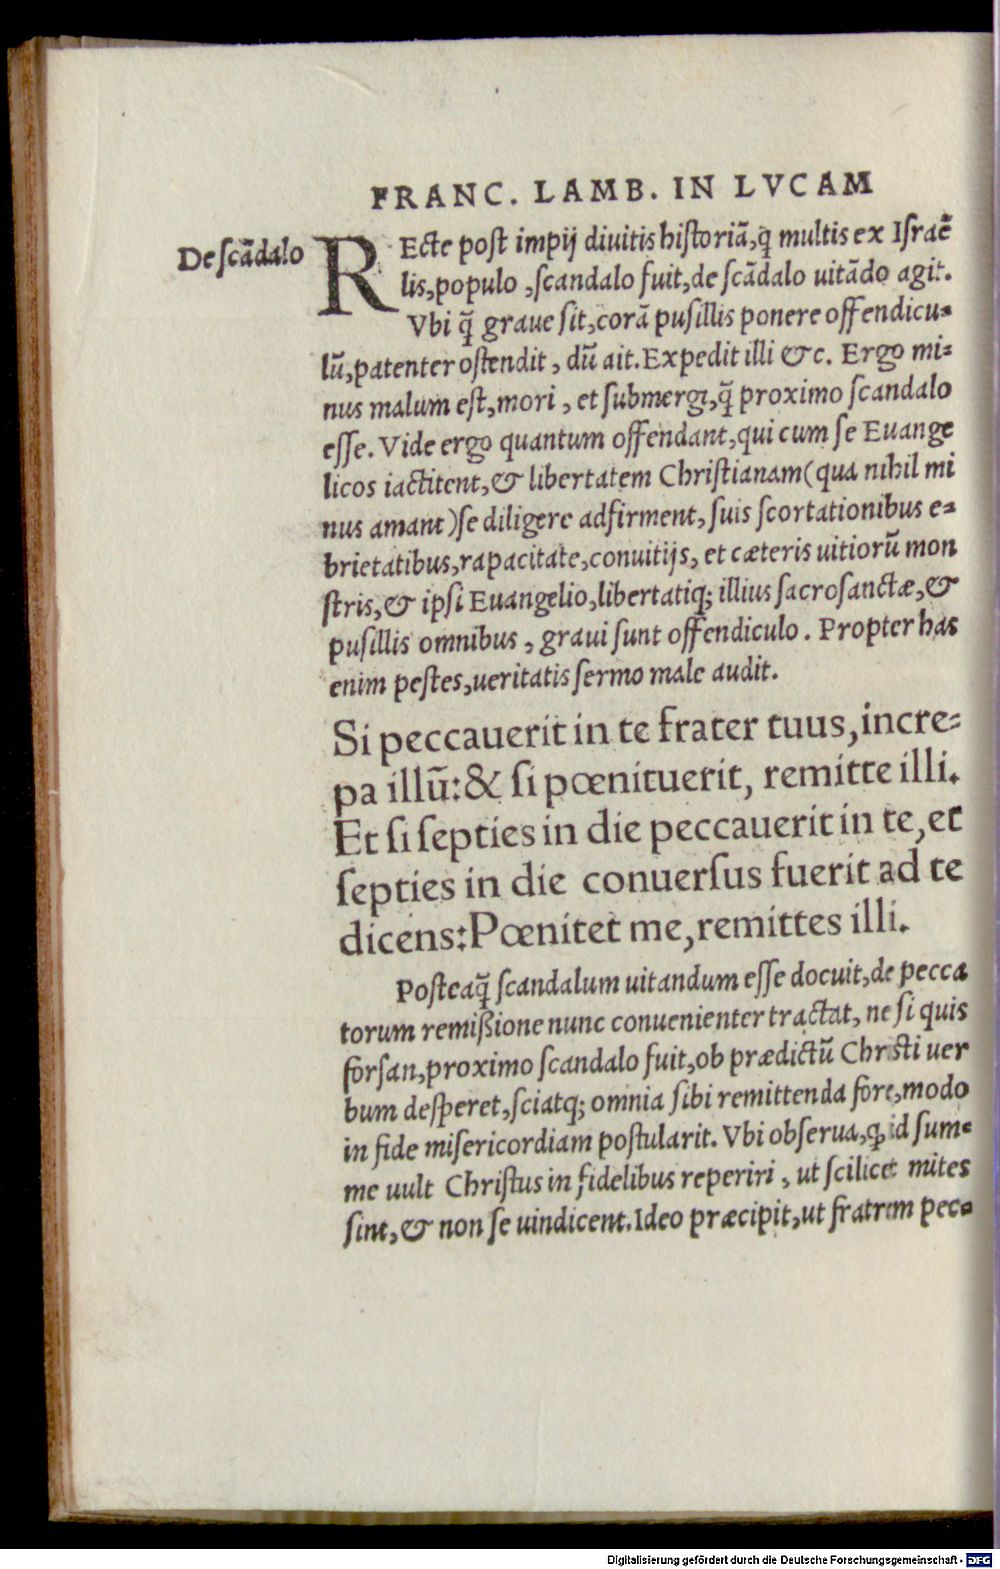 FRANC. LAMB. IN LVCAM
De scãdalo
REcte post impij diuitis historiã, q̃ multis ex Israẽ
lis, populo, scandalo fuit, de scãdalo uitãdo agit.
Vbi q̃ graue sit, corã pusillis ponere offendicu-
lũ, patenter ostendit, dũ ait. Expedit illi &c. Ergo mi-
nus malum est, mori, et submergi, q̃ proximo scandalo
esse. Vide ergo quantum offendant, qui cum se Euange
licos iactitent, & libertatem Christianam (qua nihil mi
nus amant) se diligere adfirment, suis scortationibus e-
brietatibus, rapacitate, conuitijs, et cæteris uitiorũ mon
stris, & ipsi Euangelio, libertatiq; illius sacrosanctæ, &
pusillis omnibus, graui sunt offendiculo. Propter has
enim pestes, ueritatis sermo male audit.
Si peccauerit in te frater tuus, incre-
pa illũ: & si pœnituerit, remitte illi.
Et si septies in die peccauerit in te, et
septies in die conuersus fuerit ad te
dicens: Pœnitet me, remittes illi.
Posteaq̃ scandalum uitandum esse docuit, de pecca
torum remißione nunc conuenienter tractat, ne si quis
forsan, proximo scandalo fuit, ob prædictũ Christi uer
bum desperet, sciatq; omnia sibi remittenda fore, modo
in fide misericordiam postularit. Vbi obserua, ꝙ id sum-
me uult Christus in fidelibus reperiri, ut scilicet mites
sint, & non se uindicent. Ideo præcipit, ut fratrem pec-
Digitalisierung gefördert durch die Deutsche Forschungsgemeinschaft - DFG